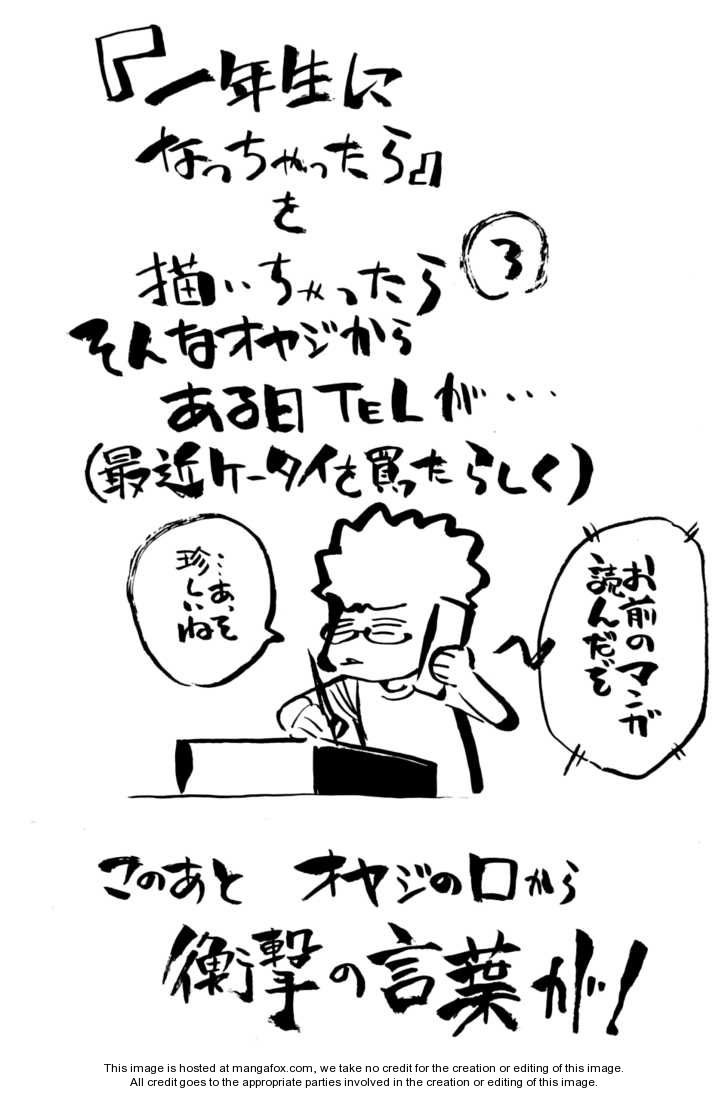 『一年生に
なっちゃったら』
を
描いちゃったら③
そんなオヤジから
ある日TELが…
(最近ケータイを買ったらしく)
お前のマンガ
読んだぞ
…あ、そ
珍しいね
このあと オヤジの口から
衝撃の言葉が!
This image is hosted at mangafox.com, we take no credit for the creation or editing of this image.
All credit goes to the appropriate parties involved in the creation or editing of this image.